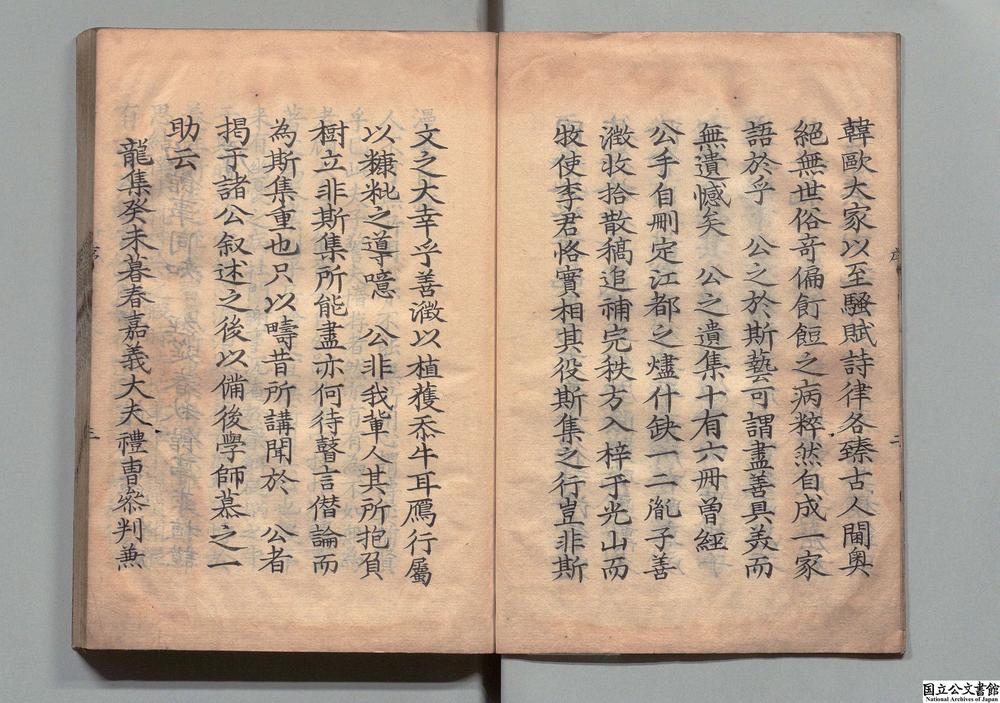 韓歐大家以至騷賦詩律各臻古人閫奧
絕無世俗奇偏飣餖之病粹然自成一家
語於乎　公之於斯藝可謂盡善具美而
無遺憾矣　公之遺集十有六冊曾經
公手自刪定江都之燼什缺一二胤子善
澂收拾散稿追補完秩方入梓于光山而
牧使李君恪實相其役斯集之行豈非斯
文之大幸乎善澂以植獲忝牛耳鴈行屬
以糠粃之導噫　公非我軰人其所抱負
樹立非斯集所能盡亦何待瞽言僭論而
為斯集重也只以疇昔所講聞於　公者
揭于諸公叙述之後以俻後學師慕之一
助云
龍集癸未暮春嘉義大夫禮曺叅判兼
序
二
序
三
国立公文書館
National Archives of Japan